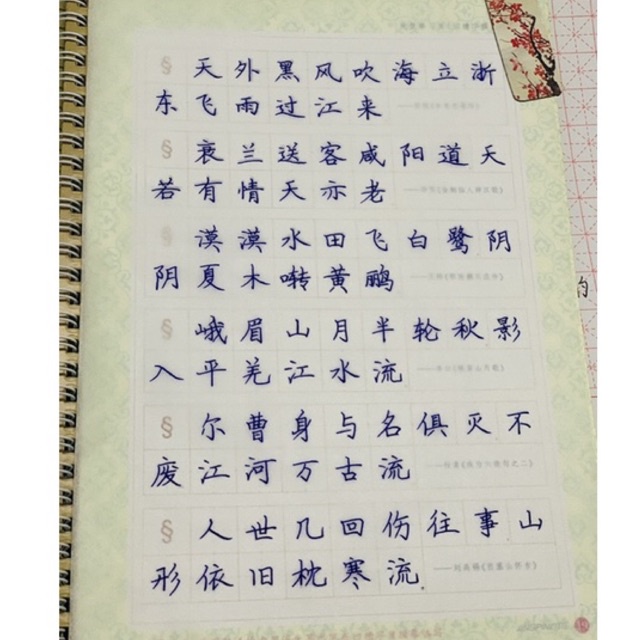 § 天外黑风吹海立浙
东飞雨过江来
§ 衰兰送客咸阳道天
若有情天亦老
§ 漠漠水田飞白鹭阴
阴夏木啭黄鹂
§ 峨眉山月半轮秋影
入平羌江水流
§ 尔曹身与名俱灭不
废江河万古流
§ 人世几回伤往事山
形依旧枕寒流